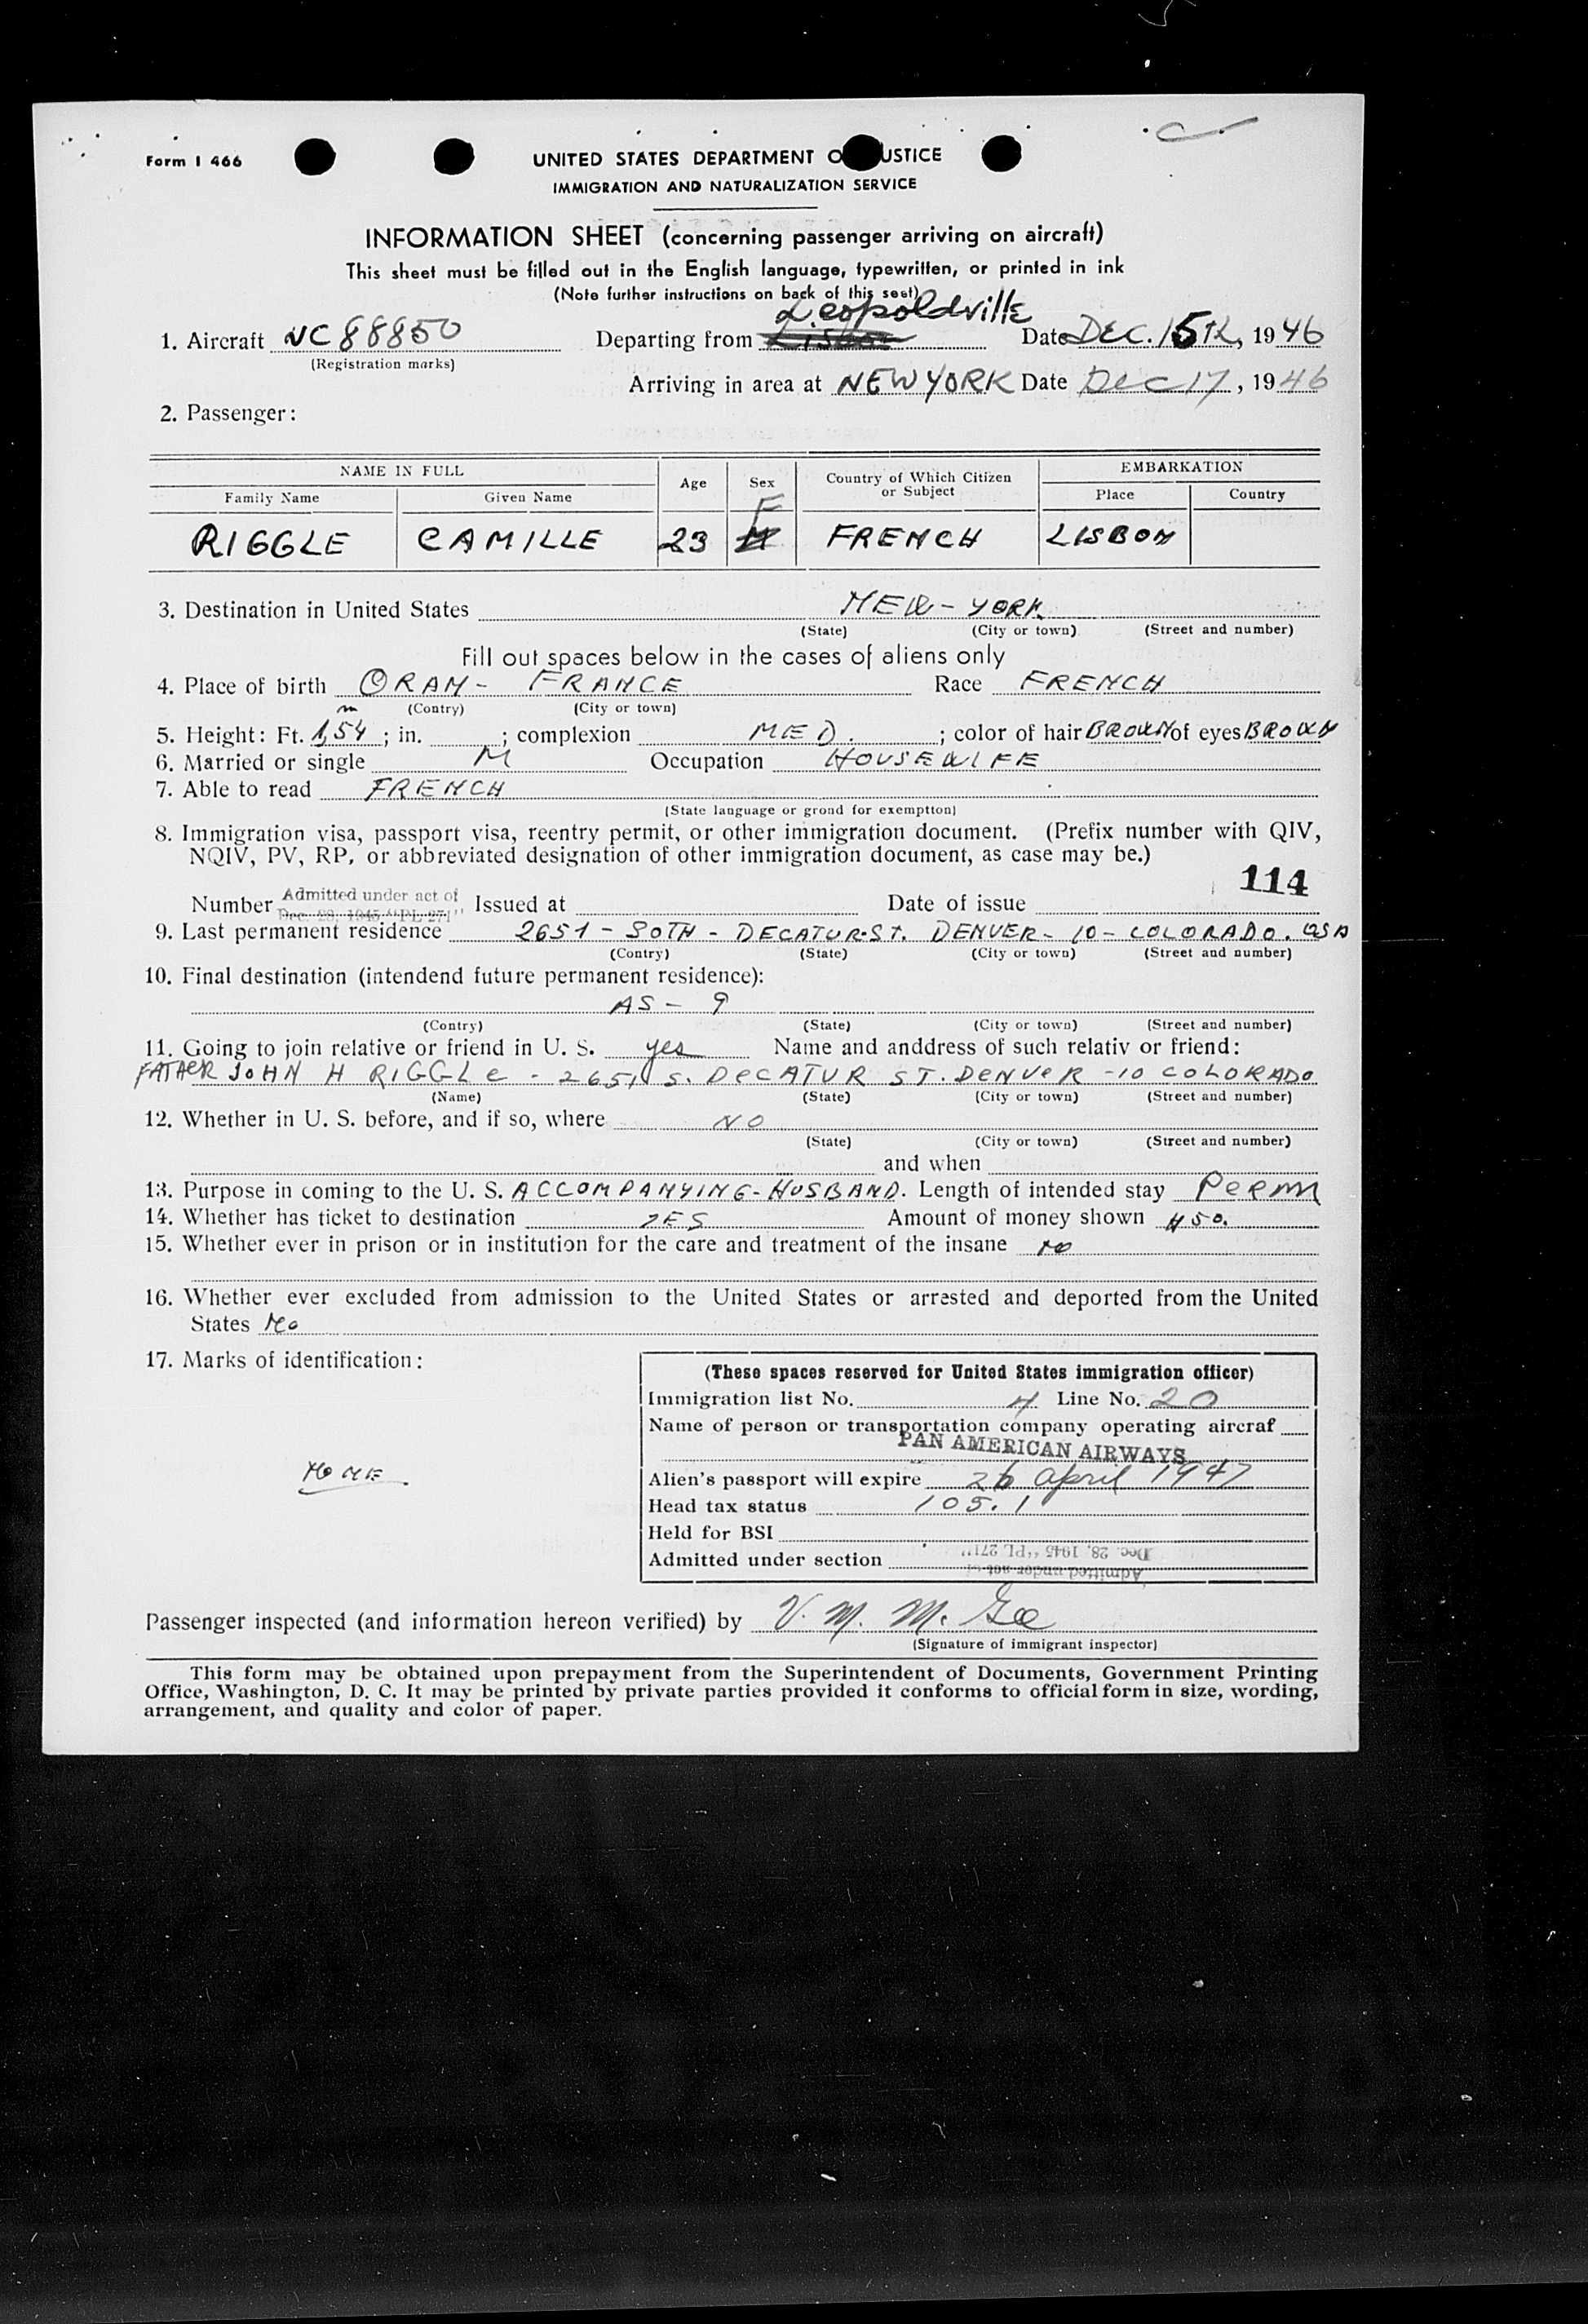 Form I 466
UNITED STATES DEPARTMENT O USTICE
IMMIGRATION AND NATURALIZATION SERVICE
INFORMATION SHEET (concerning passenger arriving on aircraft)
This sheet must be filled out in the English language, typewritten, or printed in ink
(Note further instructions on back of this seet)
1. Aircraft NC 88850 Departing from Leopoldville Date DEC. 15TH, 1946
(Registration marks)
Arriving in area at NEW YORK Date Dec 17, 1946
2. Passenger:
NAME IN FULL Age Sex Country of Which Citizen or Subject EMBARKATION
Family Name Given Name Place Country
RIGGLE CAMILLE 23 F FRENCH LISBON
3. Destination in United States NEW-YORK
(State) (City or town) (Street and number)
Fill out spaces below in the cases of aliens only
4. Place of birth ORAN- FRANCE Race FRENCH
(Contry) (City or town)
5. Height: Ft. 1,54 m; in. ; complexion MED. ; color of hair BROWN of eyes BROWN
6. Married or single M Occupation HOUSEWIFE
7. Able to read FRENCH
(State language or grond for exemption)
8. Immigration visa, passport visa, reentry permit, or other immigration document. (Prefix number with QIV,
NQIV, PV, RP, or abbreviated designation of other immigration document, as case may be.)
114
Number Admitted under act of Dec. 28, 1945 "PL 271" Issued at Date of issue
9. Last permanent residence 2651 - SOTH - DECATUR-ST. DENVER - 10 - COLORADO. USA
(Contry) (State) (City or town) (Street and number)
10. Final destination (intendend future permanent residence):
AS - 9
(Contry) (State) (City or town) (Street and number)
11. Going to join relative or friend in U. S. yes Name and anddress of such relativ or friend:
FATHER JOHN H RIGGLE - 2651 S. DECATUR ST. DENVER -10 COLORADO
(Name) (State) (City or town) (Street and number)
12. Whether in U. S. before, and if so, where NO
(State) (City or town) (Street and number)
and when
13. Purpose in coming to the U. S. ACCOMPANYING-HUSBAND. Length of intended stay Perm
14. Whether has ticket to destination YES Amount of money shown $50.
15. Whether ever in prison or in institution for the care and treatment of the insane No
16. Whether ever excluded from admission to the United States or arrested and deported from the United
States No
17. Marks of identification:
NONE
(These spaces reserved for United States immigration officer)
Immigration list No. 4 Line No. 20
Name of person or transportation company operating aircraf
PAN AMERICAN AIRWAYS
Alien's passport will expire 26 april 1947
Head tax status 105.1
Held for BSI
Admitted under section Admitted under act of Dec. 28, 1945 "PL 271"
Passenger inspected (and information hereon verified) by V. M. McGee
(Signature of immigrant inspector)
This form may be obtained upon prepayment from the Superintendent of Documents, Government Printing
Office, Washington, D. C. It may be printed by private parties provided it conforms to official form in size, wording,
arrangement, and quality and color of paper.